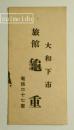 大和下市
旅館 龜重
電話二十七番